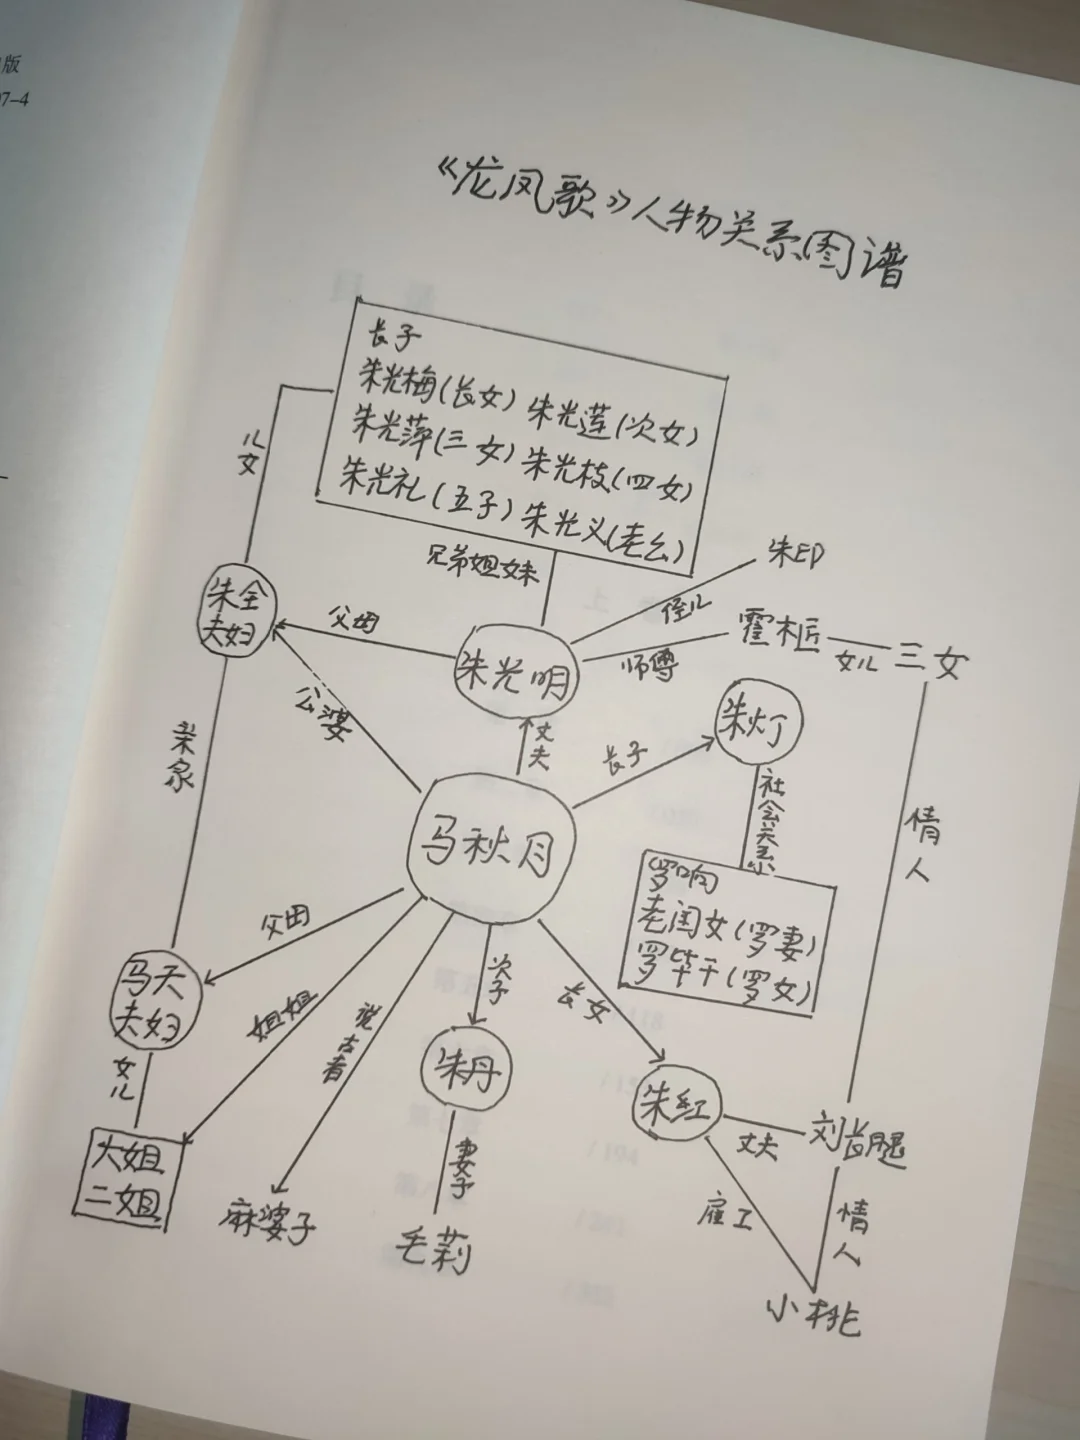 版
07-4
《龙凤歌》人物关系图谱
长子
朱光梅(长女) 朱光莲(次女)
朱光萍(三女) 朱光枝(四女)
朱光礼(五子) 朱光义(老幺)
儿女
兄弟姐妹
朱印
侄儿
朱全
夫妇
父母
朱光明
师傅
霍木匠
女儿
三女
公婆
丈夫
长子
朱灯
亲家
社会关系
情人
马秋月
罗响
老闺女(罗妻)
罗毕干(罗女)
父母
马天
夫妇
姐姐
说古者
次子
长女
女儿
朱丹
朱红
丈夫
刘长腿
大姐
二姐
妻子
雇工
情人
麻婆子
毛莉
小桃